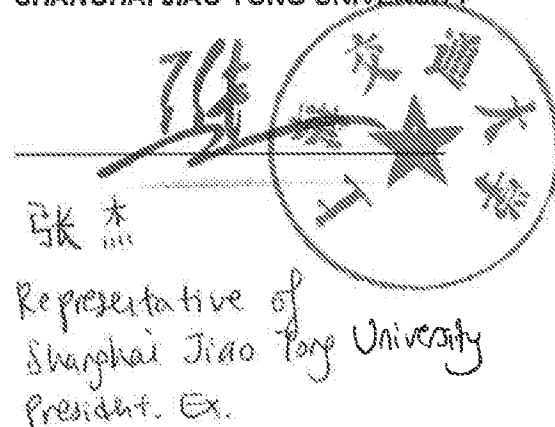 SHANGHAI JIAO TONG UNIVERSITY
上海交通大学
张杰
Representative of
Shanghai Jiao Tong University
President. Ex.